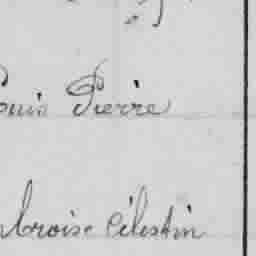 ouis Pierre
mbroise Célestin